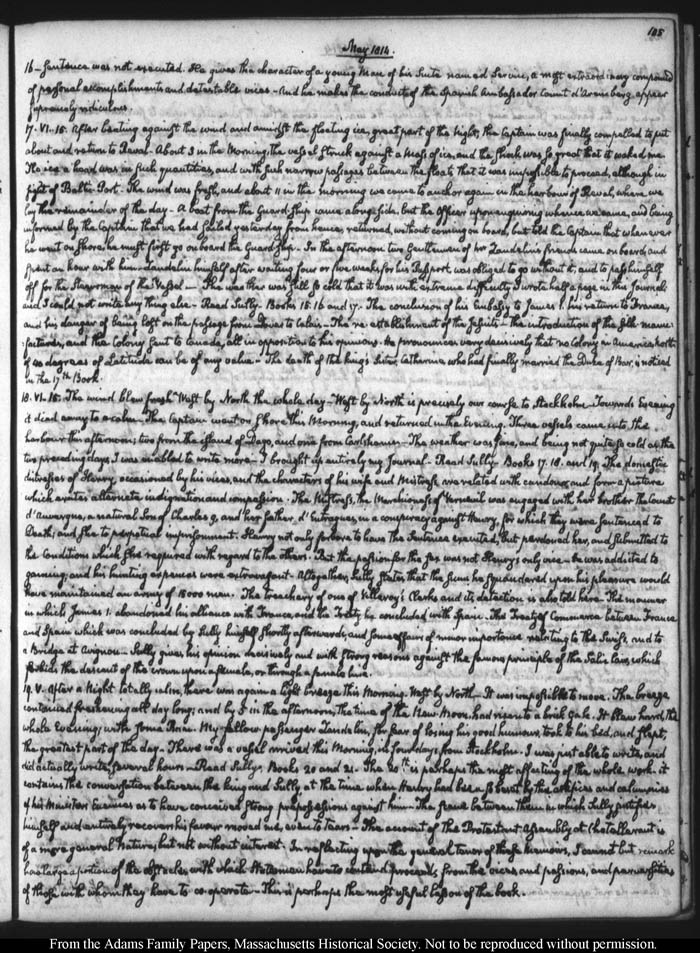 105
May 1814.
16 - Sentence was not executed. He gives the character of a young Man of his Suite named Servin, a most extraordinary compound
of personal accomplishments and detestable vices - And he makes the conduct of the Spanish Ambassador Count d'Aremberg appear
supremely ridiculous.
17. VI. 15. After beating against the wind and amidst the floating ice, great part of the Night, the Captain was finally compelled to put
about and return to Reval. About 3 in the Morning the vessel struck against a Mass of ice, and the shock was so great that it waked me.
The ice ahead was in such quantities, and with such narrow passages between the floats that it was impossible to proceed, although in
sight of Baltic-Port. The wind was fresh, and about 11 in the morning we came to anchor again in the harbour of Reval, where we
lay the remainder of the day - A boat from the Guard-Ship came along-side, but the Officer upon enquiring whence we came, and being
informed by the Captain that we had sailed yesterday from hence, returned, without coming on board, but told the Captain that whenever
he went on shore, he must first go on board the Guard-Ship - In the afternoon two Gentlemen of Mr Zandelin's friends came on board, and
spent an hour with him - Zandelin himself after waiting four or five weeks for his Passport, was obliged to go without it, and to pass himself
off for the Steersman of the Vessel - The weather was still so cold that it was with extreme difficulty I wrote half a page in this Journal
and I could not write any thing else - Read Sully - Books 15. 16 and 17. The conclusion of his Embassy to James 1. his return to France,
and his danger of being lost on the passage from Dover to Calais - The re-establishment of the Jesuits - the introduction of the silk-manu-
factures, and the Colony sent to Canada, all in opposition to his opinions. He pronounces very decisively that no Colony in America, north
of 40 degrees of Latitude can be of any value. The death of the king's Sister, Catherine, who had finally married the Duke of Bar, is noticed
in the 17th Book.
18. VI. 15. The wind blew fresh West by North the whole day - West by North is precisely our course to Stockholm. Towards Evening
it died away to a calm - The Captain went on shore this Morning, and returned in the Evening. Three vessels came into the
harbour this afternoon; two from the island of Dago, and one from Carlshamn - The weather was fine, and being not quite so cold as the
two preceding days, I was enabled to write more - I brought up entirely my Journal - Read Sully - Books 17. 18. and 19. The domestic
distresses of Henry, occasioned by his vices, and the characters of his wife and Mistress, are related with candour, and form a picture
which excites alternate indignation and compassion. The Mistress, the Marchioness of Verneuil was engaged with her brother the Count
d'Auvergne, a natural Son of Charles 9, and her father, d'Entragues, in a conspiracy against Henry, for which they were sentenced to
Death; and she to perpetual imprisonment. Henry not only forbore to have the Sentence executed, but pardoned her, and submitted to
the Conditions which she required with regard to the others. But the passion for the sex was not Henry's only vice - he was addicted to
gaming; and his hunting expences were extravagant - Altogether, Sully states that the sums he squandered upon his pleasures would
have maintained an army of 15000 men. The treachery of one of Villeroy's Clerks and its detection is also told here. The manner
in which James 1. abandoned his alliance with France, and the Treaty he concluded with Spain. The Treaty of Commerce between France
and Spain which was concluded by Sully himself shortly afterwards, and some affairs of minor importance relating to the Swiss, and to
a Bridge at Avignon - Sully gives his opinion decisively and with strong reasons against the famous principle of the Salic law, which
forbids the descent of the crown upon a female, or through a female line.
19. V. After a Night totally calm, there was again a light breeze this Morning West by North - It was impossible to move. The breeze
continued freshening all day long; and by 5 in the afternoon, the time of the New-Moon, had risen to a brisk gale. It blew hard, the
whole Evening; with some Rain. My fellow passenger Zandelin, for fear of losing his good humour, took to his bed, and slept,
the greatest part of the day - There was a vessel arrived this Morning, in four days from Stockholm. I was just able to write, and
did actually write, several hours - Read Sully, Books 20 and 21. The 20th is perhaps the most affecting of the whole work. it
contains the conversation between the king and Sully at the time when Henry had been so beset by the artifices and calumnies
of his Minister's Enemies as to have conceived strong prepossessions against him - The scene between them in which Sully justifies
himself and entirely recovers his favour moved me, even to tears - The account of the Protestant Assembly at Chatellerault is
of a more general Nature, but not without interest. In reflecting upon the general tenor of these Memoirs, I cannot but remark
how large a portion of the obstacles with which Statesmen have to contend, proceeds from the vices, and passions, and perversities
of those with whom they have to co-operate - This is perhaps the most useful lesson of the book.
From the Adams Family Papers, Massachusetts Historical Society. Not to be reproduced without permission.